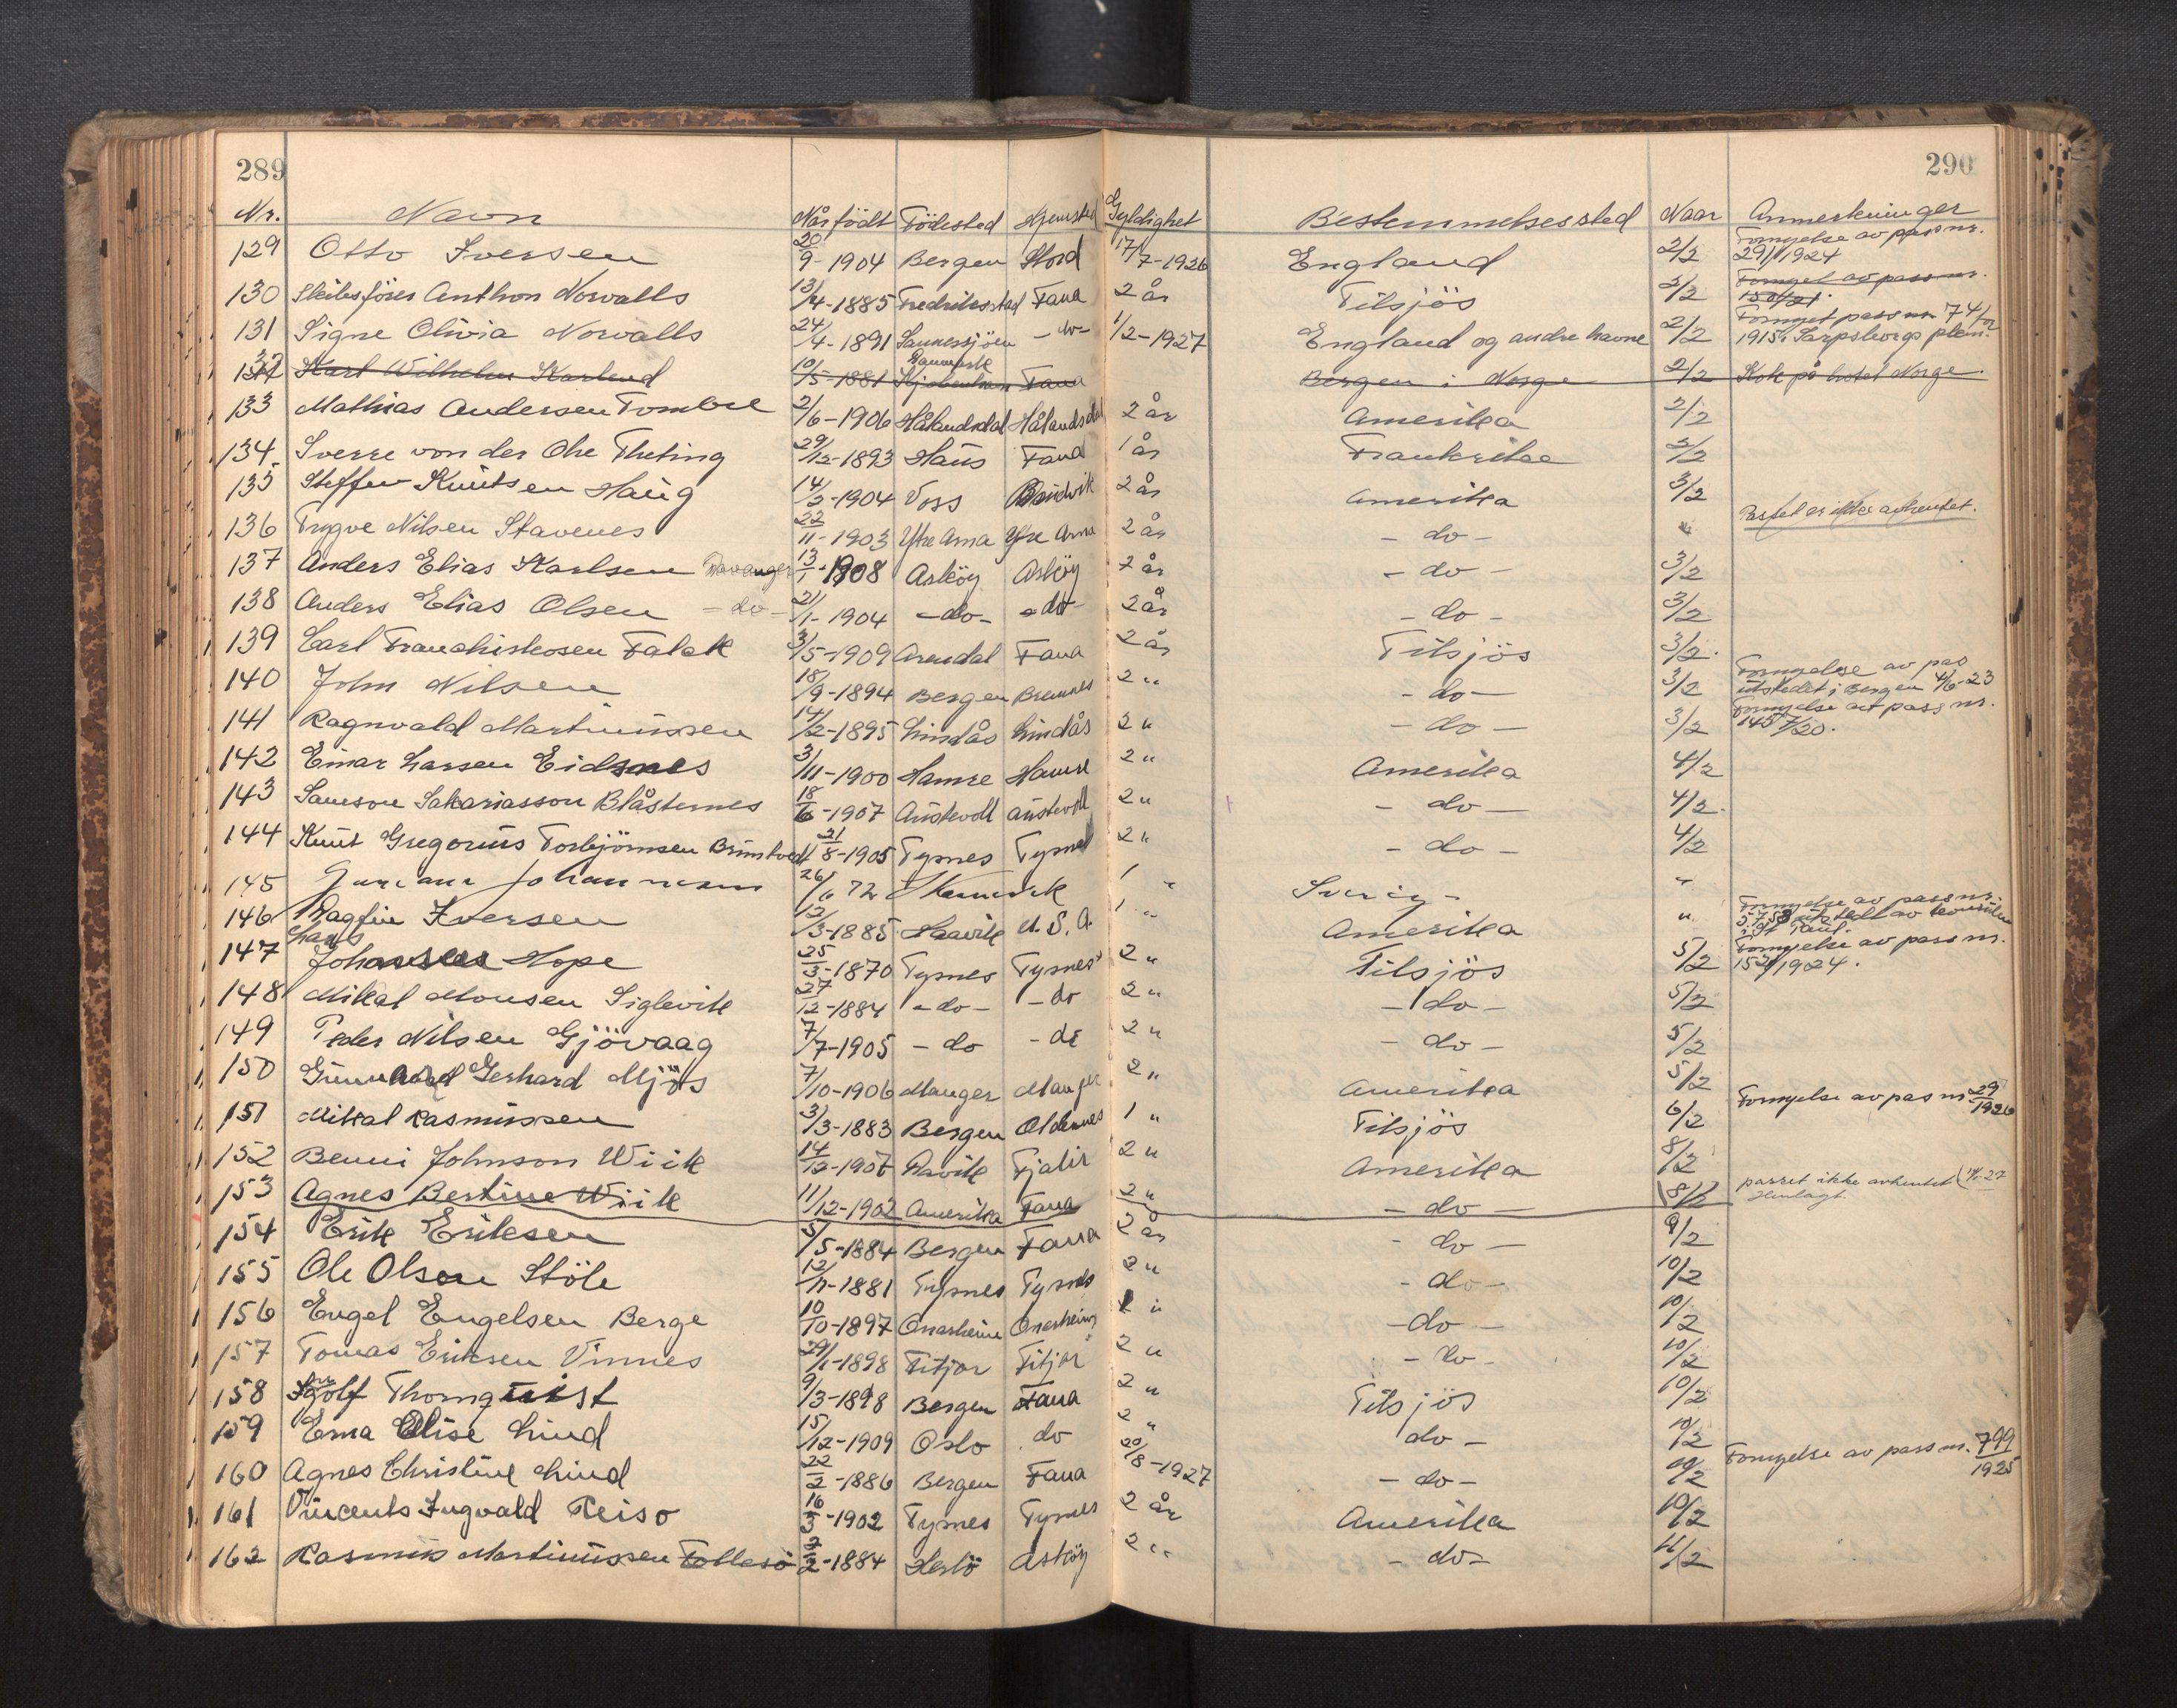 289
290
Nr. Navn Når födt Födested Hjemsted Gyldighet Bestemmelsessted Naar Anmerkninger
129 Otto Iversen 20/9-1904 Bergen Stord 17/7-1926 England 2/2 Fornyelse av pass nr. 291/1924
130 Skibsförer Anthon Norvalls 13/4-1885 Fredriksstad Fana 2 år Tilsjös 2/2 Fornyet av pass nr. 150/21.
131 Signe Olivia Norvalls 24/4-1891 Sannessjöen -do- 1/2-1927 England og andre havne 2/2 Fornyet pass nr 74/ 1915. Sarpsborgs
132 Karl Wilhelm Karlund 10/5-1881 Danmark Kjøbenhavn Fana Bergen i Norge 2/2 Kok på hotel Norge.
133 Mathias Andersen Tombre 2/6-1906 Hålandsdal Hålandsdal 2 år Amerika 2/2
134 Sverre von der Ohe Theting 29/12-1893 Haus Fana 1 år Frankrike 2/2
135 Steffen Knutsen Haug 14/2-1904 Voss Bruvik 2 år Amerika 3/2
136 Trygve Nilsen Stavenes 22/11-1903 Ytre Arna Ytre Arna 2 år -do- " Passet er ikke avhentet.
137 Anders Elias Karlsen Davanger 13/1-1908 Asköy Asköy 2 år -do- 3/2
138 Anders Elias Olsen -do- 21/1-1904 -do- -do- 2 år -do- 3/2
139 Carl Franchiskosen Falck 3/5-1909 Arendal Fana 2 år Tilsjös 3/2.
140 John Nilsen 18/9-1894 Bergen Bremnes 2 " -do- 3/2 Fornyelse av pas utstedet i Bergen 4/6-23
141 Ragnvald Martinussen 14/2-1895 Lindås Lindås 2 " -do- 3/2 Fornyelse av pass nr. 1457/20.
142 Einar Larsen Eidsnes 3/11-1900 Hamre Hamre 2 " Amerika 4/2
143 Samson Sakariasson Blåsternes 18/6-1907 Austevoll Austevoll 2 " -do- 4/2.
144 Knut Gregorius Torbjörnsen Brimtvedt 21/8-1905 Tysnes Tysnes 2 " -do- 4/2
145 Johannesen 26/6 72 1 " Sverig- "
146 Dagfin Iversen 12/3-1885 Haavik U.S.A. 1 " Amerika " Fornyelse av pass nr. 5758 i St Paul.
147 Hans Johansen Hope 25/3-1870 Tysnes Tysnes 2 " Tilsjös 5/2 Fornyelse av pass nr. 152/1924.
148 Mikal Monsen Siglevik 27/12-1884 -do- -do 2 " -do- 5/2
149 Peder Nilsen Gjövaag 7/7-1905 -do -do 2 " -do- 5/2
150 Gunnvald Gerhard Mjös 7/10-1906 Manger Manger 2 " Amerika 5/2
151 Mikal Rasmussen 3/3-1883 Bergen Oldernes 1 " Tilsjös 6/2 Fornyelse av pas nr. 29/1926
152 Benni Johnson Wiik 14/12-1907 Davik Fjalir 2 " Amerika 8/2
153 Agnes Bertine Wiik 11/12-1902 Amerika Fana 2 " -do- 8/2 passet ikke avhentet Henlagt.
154 Erik Eriksen 5/5-1884 Bergen Fana 2 år -do- 9/2
155 Ole Olson Stöle 12/11-1881 Tysnes Tysnes 2 " -do- 10/2
156 Engel Engelsen Berge 10/10-1897 Onarheim Onarheim 2 " -do- 10/2
157 Tomas Eriksen Vinnes 29/1-1898 Fitjar Fitjar 2 " -do- 10/2
158 Ingolf Thornquist 9/3-1898 Bergen Fana 2 " Tilsjös 10/2
159 Erna Elise Lind 15/12-1909 Oslo do 2 " do- 10/2
160 Agnes Christine Lind 22/2-1886 Bergen Fana 20/8-1927 -do- 10/2 Fornyelse av pass nr. 799/1925
161 Vincents Ingvald Reiso 16/3-1902 Tysnes Tysnes 2 år Amerika 10/2
162 Rasmus Martinussen Follesö 2/2-1884 Herlö Asköy 2 " -do- 11/2